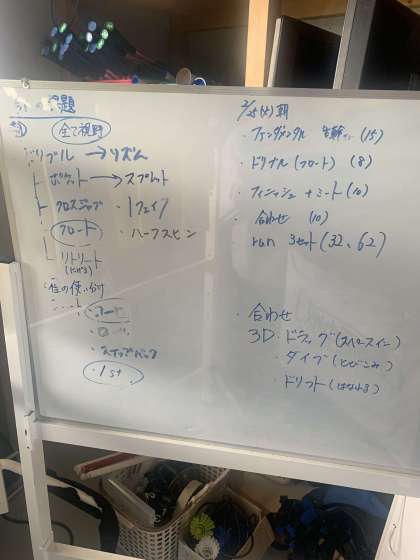 全て視野
ドリブル → リズム
ポケット → スプリット
クロスジャブ ・1フェイク
フロート ・ハーフスピン
リトリート
(にげる)
の使い分け
・ステップバック
・1st
2/25(火)朝
・ファンダメンタル (15)
・ドリブル (フロート) (8)
・フィニッシュ + ミート (10)
・合わせ (10)
run 3セット (32、62)
・合わせ
3D・ドラッグ(スペースイン)
・ダイブ(とびこみ)
・ドリフト(はなれる)